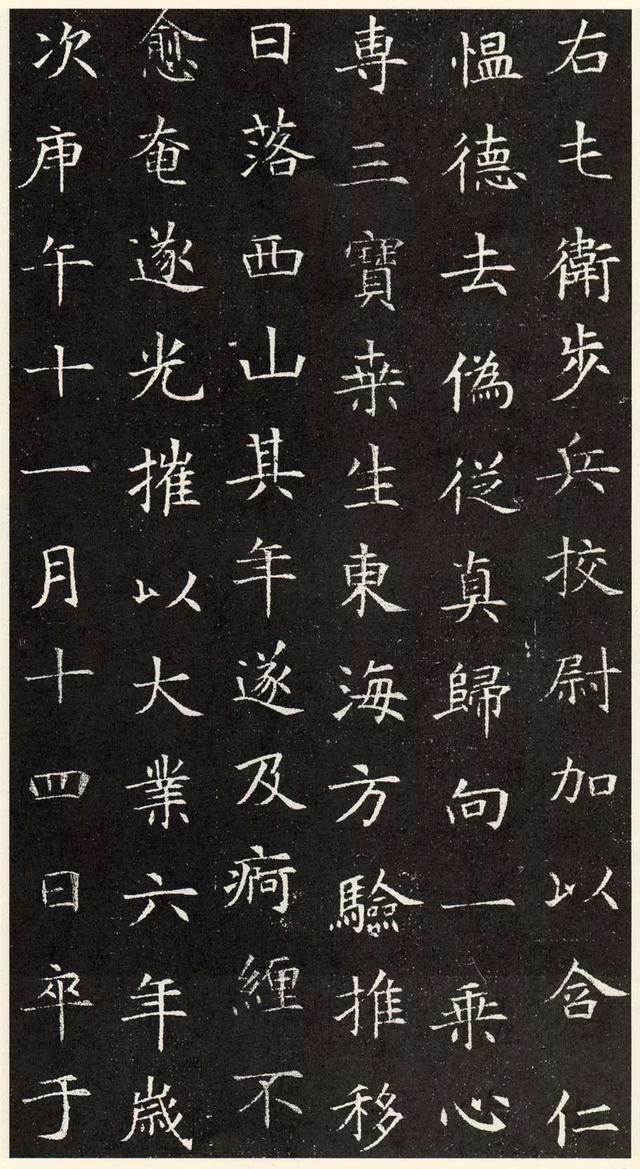 右屯衛步兵挍尉加以含仁
愠德去偽從真歸向一乗心
専三寶桒生東海方驗推移
日落西山其年遂及痾纏不
愈奄遂光摧以大業六年歳
次庚午十一月十四日卒于